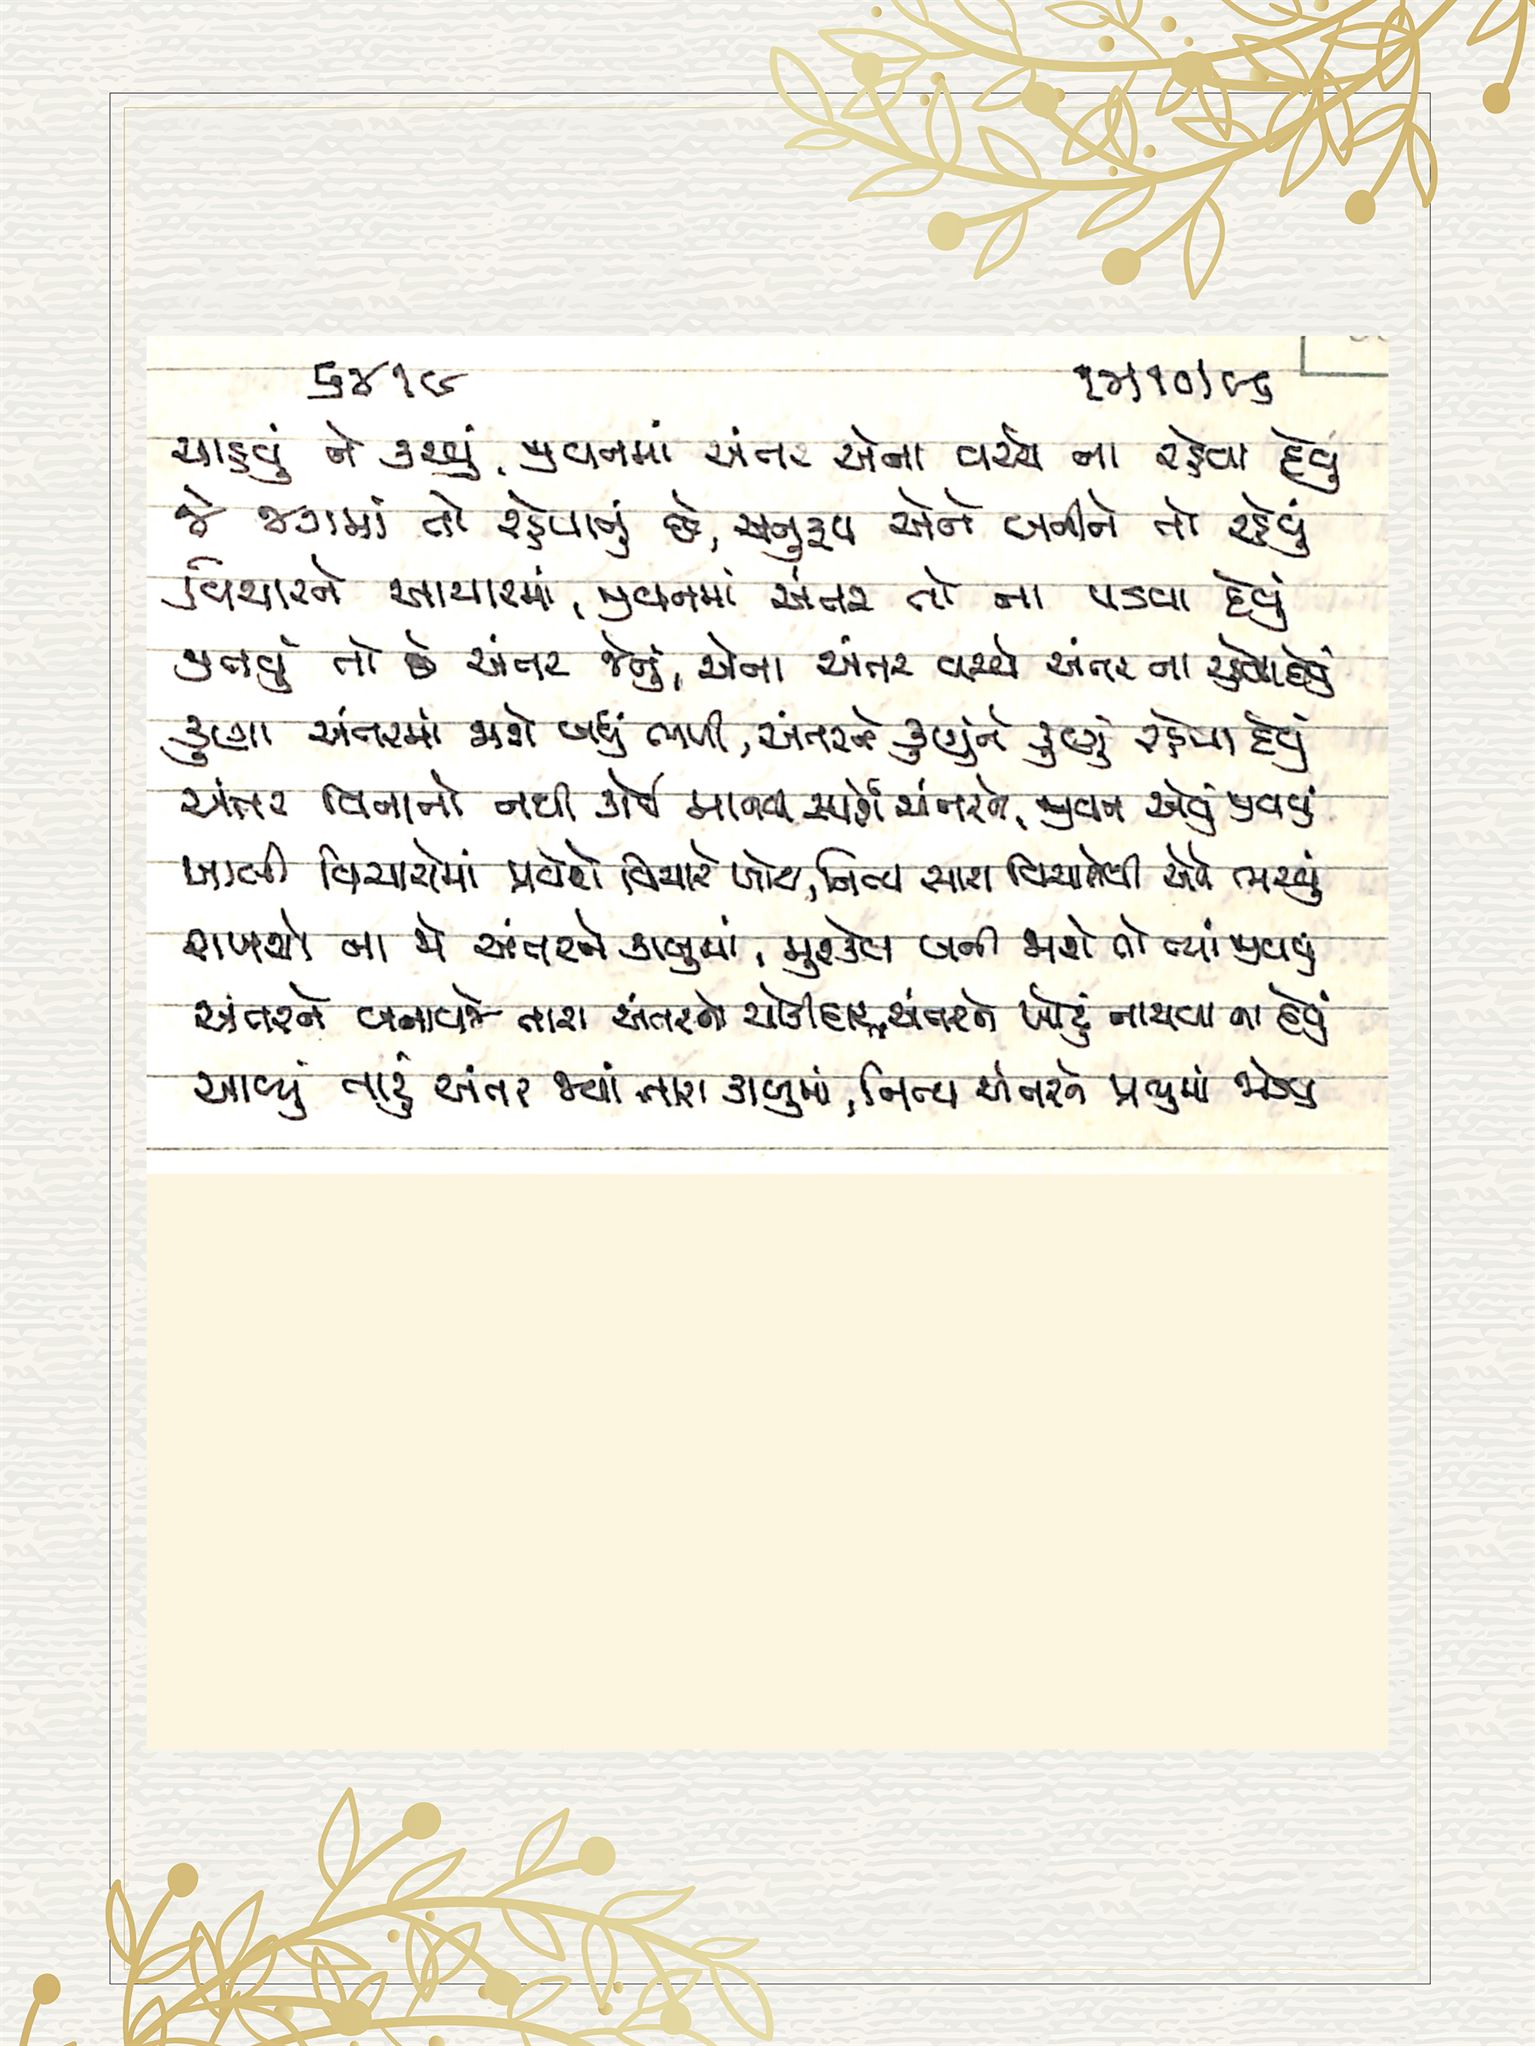 ૬૪૧૯ ૧૨/૧૦/૯૬
ચાહવું ને કરવું, જીવનમાં અંતર એના વચ્ચે ના રહેવા દેવું
જે જગમાં તો રહેવાનું છે, અનુરૂપ એને બનીને તો રહેવું
વિચારને આચારમાં, જીવનમાં અંતર તો ના પડવા દેવું
જીતવું તો છે અંતર જેનું, એના અંતર વચ્ચે અંતર ના રહેવા દેવું
કુણા અંતરમાં જાશે બધું ભળી, અંતરને કુણું ને કુણું રહેવા દેવું
અંતર વિનાનો નથી કોઈ માનવ સ્પર્શે અંતરને, જીવન એવું જીવવું
ખાલી વિચારોમાં પ્રવેશે વિચારો ખોટા, નિત્ય સારા વિચારોથી એને ભરવું
રાખશો ના જો અંતરને કાબુમાં, મુશ્કેલ બની જાશે તો ત્યાં જીવવું
અંતરને બનાવજે તારા અંતરનો ચોકીદાર, અંતરને ખોટું નાચવા ના દેવું
આવ્યું તારું અંતર જ્યાં તારા કાબુમાં, નિત્ય અંતરને પ્રભુમાં જોડવું